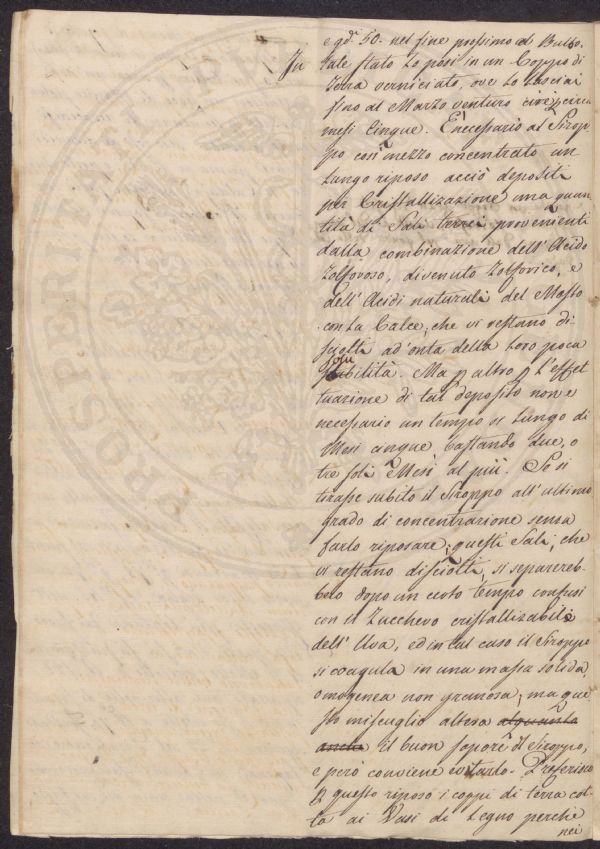 e gd. 50. nel fine prossimo del Bullo.
In tale stato lo posi in un Coppo di
terra verniciato, ove lo lasciai
fino al Marzo venturo circa
mesi Cinque. È necessario al Sirop-
po così mezzo concentrato un
lungo riposo acciò depositi
per Cristallizazione una quan
tità di Sali terrei provenienti
dalla combinazione dell'Acido
Zolforoso, divenuto Zolforico, e
dell'Acidi naturali del Mosto
con la Calce, che vi restano di-
sciolti ad'onta della loro poca
solubilità. Ma p altro p l'effet
tuazione di tal deposito non è
necessario un tempo sì lungo di
Mesi cinque, bastando due, o
tre soli Mesi al più. Se si
tirasse subito il Siroppo all'ultimo
grado di concentrazione senza
farlo riposare, questi Sali, che
vi restano disciolti, si separereb-
bero dopo un certo tempo confusi
con il Zucchero cristallizabile
dell'Uva, ed in tal caso il Siroppo
si coagula in una massa solida,
omogenea non granosa, ma que
sto miscuglio altera alquanto
anche il buon sapore del Siroppo,
e però conviene evitarlo. Preferisco
p questo riposo i coppi di terra cot-
ta ai Vasi di Legno perchè
nei